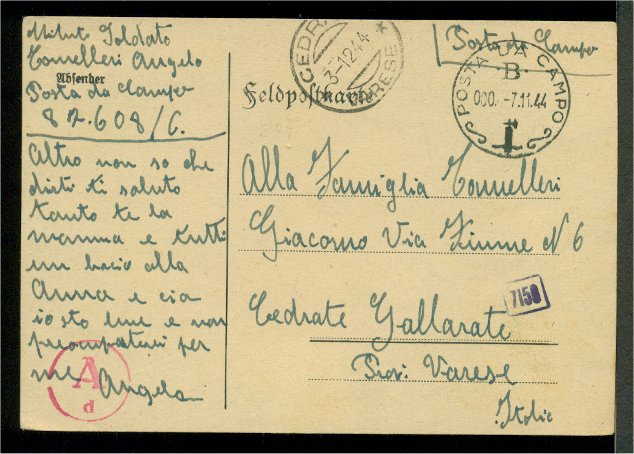 Mitte Soldato
Tonnelleri Angelo
Absender
Posta da Campo
87.608/C.
Altro non so che
dirti ti saluto
tanto te la
mamma e tutti
un bacio alla
Anna e cia
io sto bene e non
preoccupatevi per
me Angelo
A
d
Feldpostkarte
CEDRATE
VARESE
3-12.44
Posta da Campo
POSTA DA CAMPO
B
000. -7.11.44
Alla Famiglia Tonnelleri
Giacomo Via Fiume N 6
7150
Cedrate Gallarate
Prov. Varese
Italia